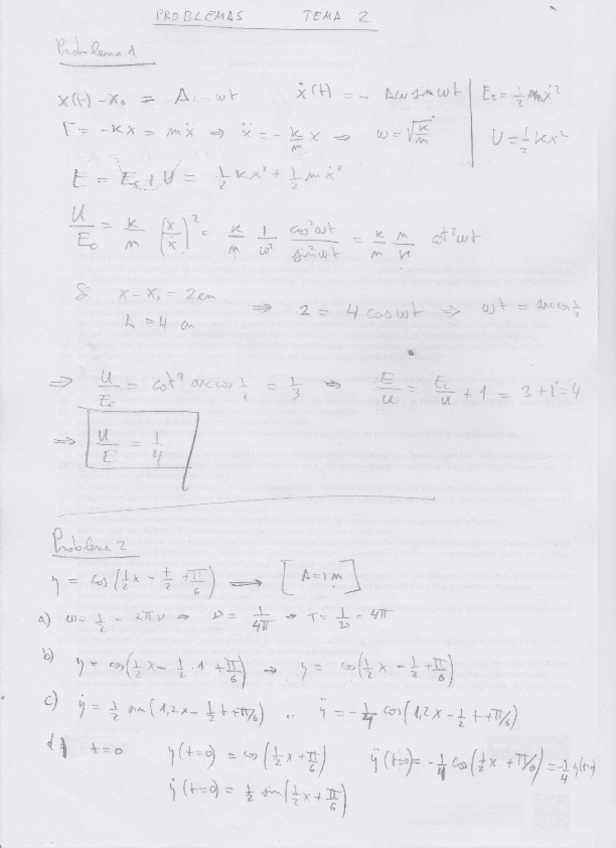 PROBLEMAS TEMA 2
Problema 1
x(t) - x₀ = A cos ωt ẋ(t) = - Aω sin ωt | Ec = ½ mẋ²
F = -Kx = mẍ ⇒ ẍ = - K/m x ⇒ ω = √(K/m) | U = ½ Kx²
E = Ec + U = ½ Kx² + ½ mẋ²
U/Ec = K/m [x/ẋ]² = K/m 1/ω² cos²ωt/sin²ωt = K/m m/K cot²ωt
Si x - x₀ = 2 cm ⇒ 2 = 4 cos ωt ⇒ ωt = arcos ½
A = 4 cm
⇒ U/Ec = cot² arcos ½ = 1/3 ⇒ E/U = Ec/U + 1 = 3 + 1 = 4
⇒ U/E = 1/4
Problema 2
y = cos(½x - t/2 + π/6) ⟶ [A = 1 m]
a) ω = ½ = 2πν ⇒ ν = 1/4π ⇒ T = 1/ν = 4π
b) y = cos(½x - ½·1 + π/6) → y = cos(½x - ½ + π/6)
c) ẏ = ½ sin(1,2x - ½t + π/6) .. ÿ = -¼ cos(1,2x - ½t + π/6)
d) t=0 y(t=0) = cos(½x + π/6) ÿ(t=0) = -¼ cos(½x + π/6) = -¼
ẏ(t=0) = ½ sin(½x + π/6)